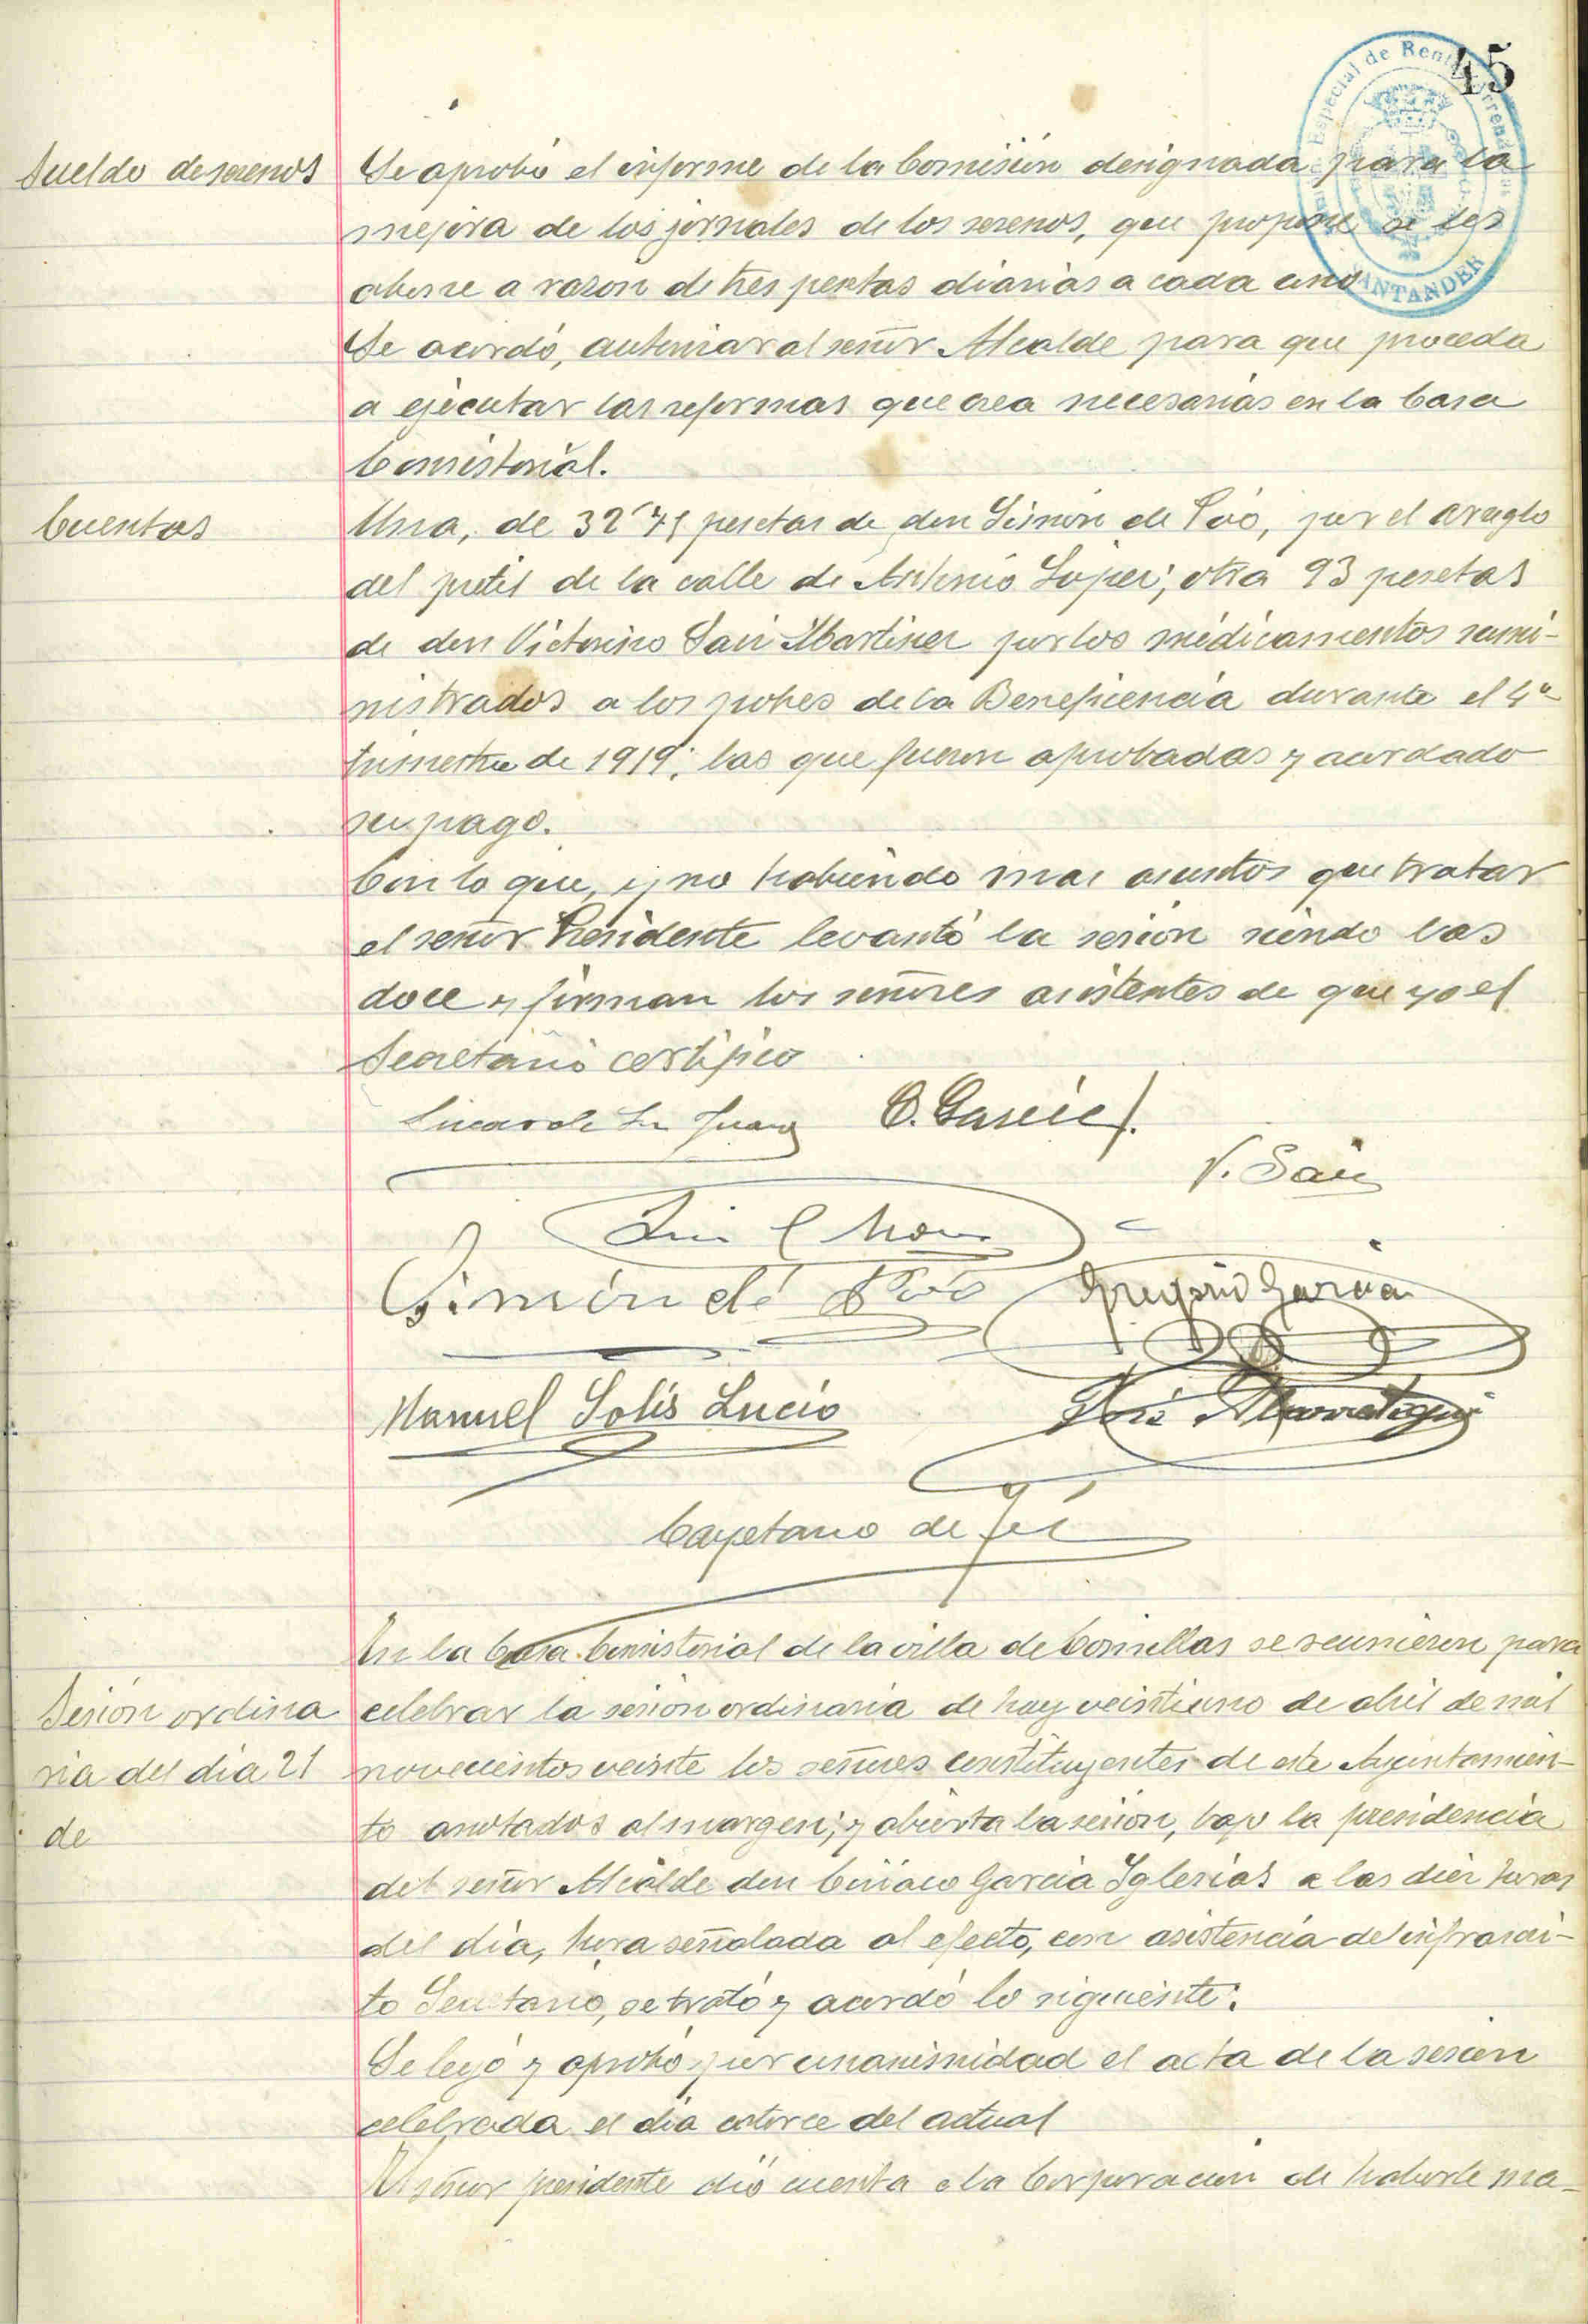 45
Especial de Rent
SANTANDER
Sueldo de serenos
Se aprobó el informe de la Comisión designada para la
mejora de los jornales de los serenos, que propone se les
abone a razon de tres pesetas diarias a cada uno
Se acordó, autorizar al señor Alcalde para que proceda
a ejecutar las reformas que crea necesarias en la Casa
Consistorial.
Cuentas
Una, de 32'45 pesetas de don Simón de Póo, por el arreglo
del pretil de la calle de Antonio López; otra 93 pesetas
de don Victorino San Martinez por los médicamentos sumi-
nistrados a los pobres de la Beneficencia durante el 4º
trimestre de 1919; las que fueron aprobadas y acordado
su pago.
Con lo que, y no habiendo mas asuntos que tratar
el señor Presidente levantó la sesion siendo las
doce y firman los señores asistentes de que yo el
Secretario certifico
C. Garcia
V. Saiz
Simón de Póo
Gregorio Garcia
Manuel Solís Lucio
José
Cayetano de
En la Casa Consistorial de la villa de Comillas se reunieron para
Sesión ordina
celebrar la sesion ordinaria de hoy veintiuno de abril de mil
ria del dia 21
novecientos veinte los señores constituyentes de este Ayuntamien-
de
to anotados al margen; y abierta la sesion, bajo la presidencia
del señor Alcalde don Ciriaco Garcia Iglesias a las diez horas
del dia, hora señalada al efecto, con asistencia del infrascri-
to Secretario, se trató y acordó lo siguiente:
Se leyó y aprobó por unanimidad el acta de la sesion
celebrada el dia catorce del actual
El señor presidente dió cuenta a la Corporacion de haberle ma-